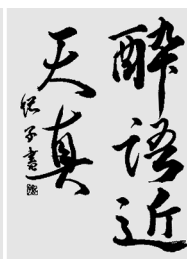 醉語近
天真
悠子書